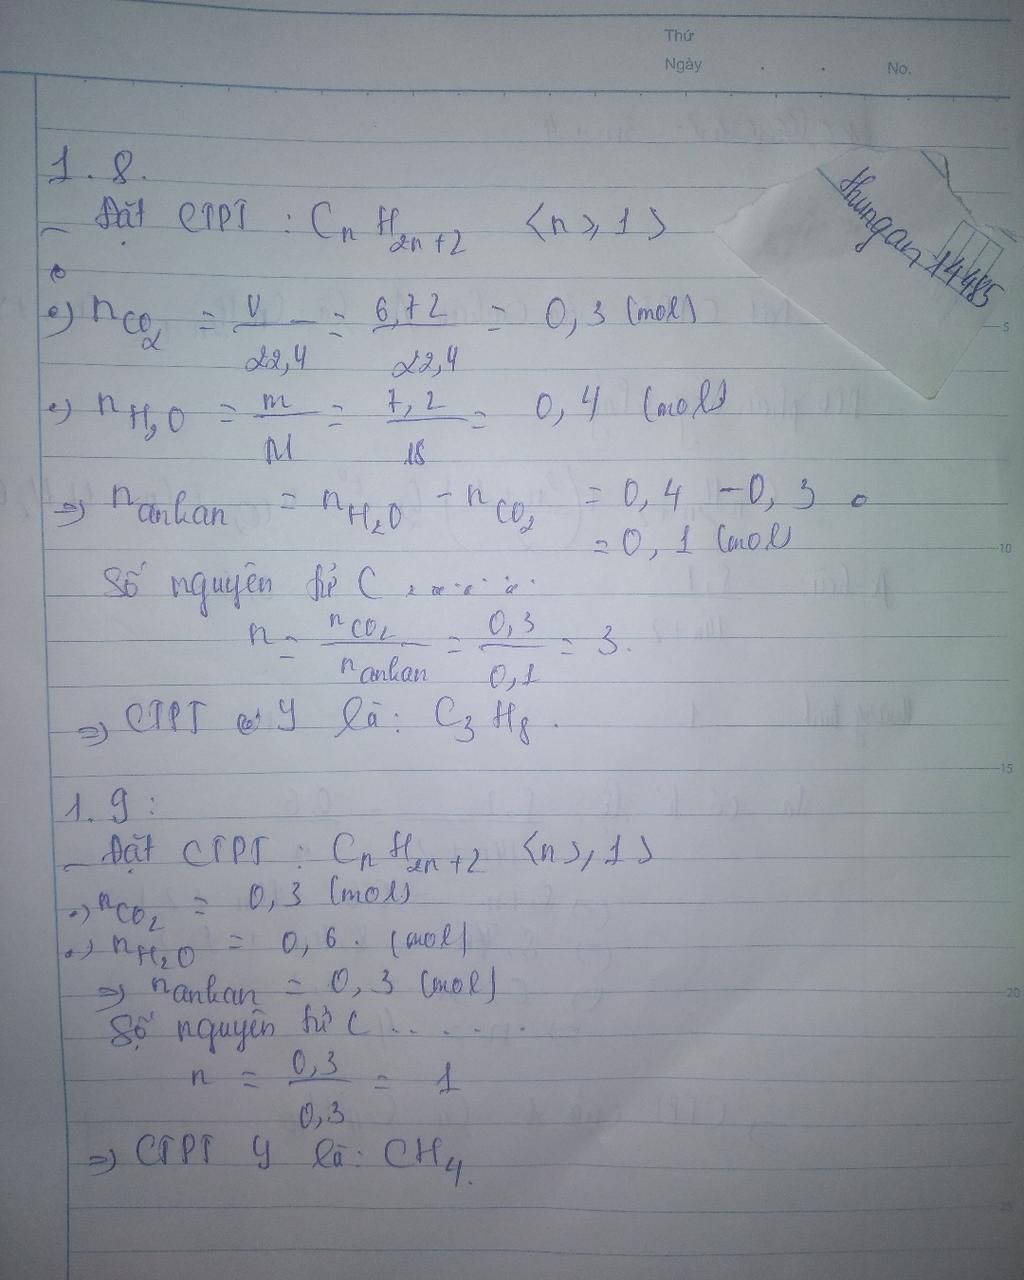 Thứ
Ngày . . No.
1.8.
- Đặt CTPT : CnH2n+2 <n>,1>
•) nCO2 = V/22,4 = 6,72/22,4 = 0,3 (mol)
•) nH2O = m/M = 7,2/18 = 0,4 (mol)
=> nankan = nH2O - nCO2 = 0,4 - 0,3
= 0,1 (mol)
Số nguyên tử C .....
n = nCO2/nankan = 0,3/0,1 = 3.
=> CTPT Y là: C3H8.
1.9:
- Đặt CTPT : CnH2n+2 <n>,1>
•) nCO2 = 0,3 (mol)
•) nH2O = 0,6. (mol)
=> nankan = 0,3 (mol)
Số nguyên tử C .....
n = 0,3/0,3 = 1
=> CTPT Y là: CH4.
thungan 14485
5
10
15
20
25